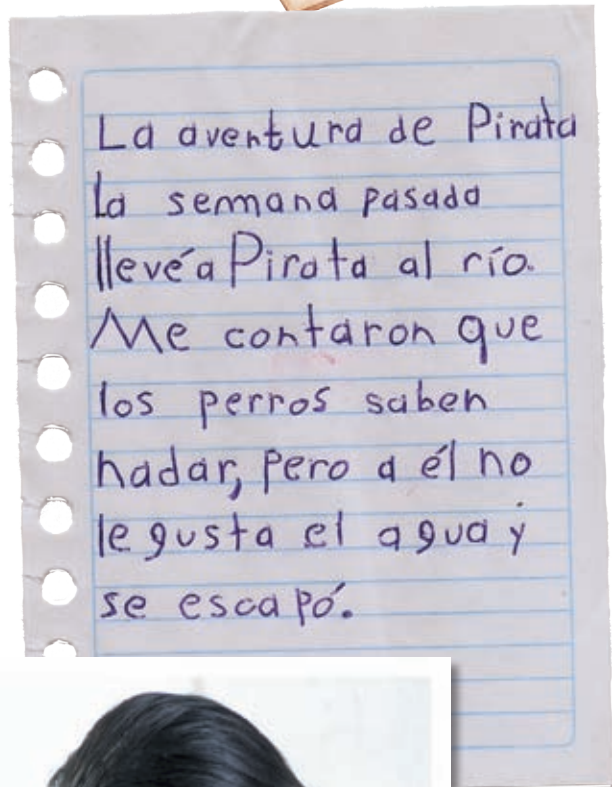 La aventura de Pirata
La semana pasada
llevé a Pirata al río.
Me contaron que
los perros saben
nadar, pero a él no
le gusta el agua y
se escapó.